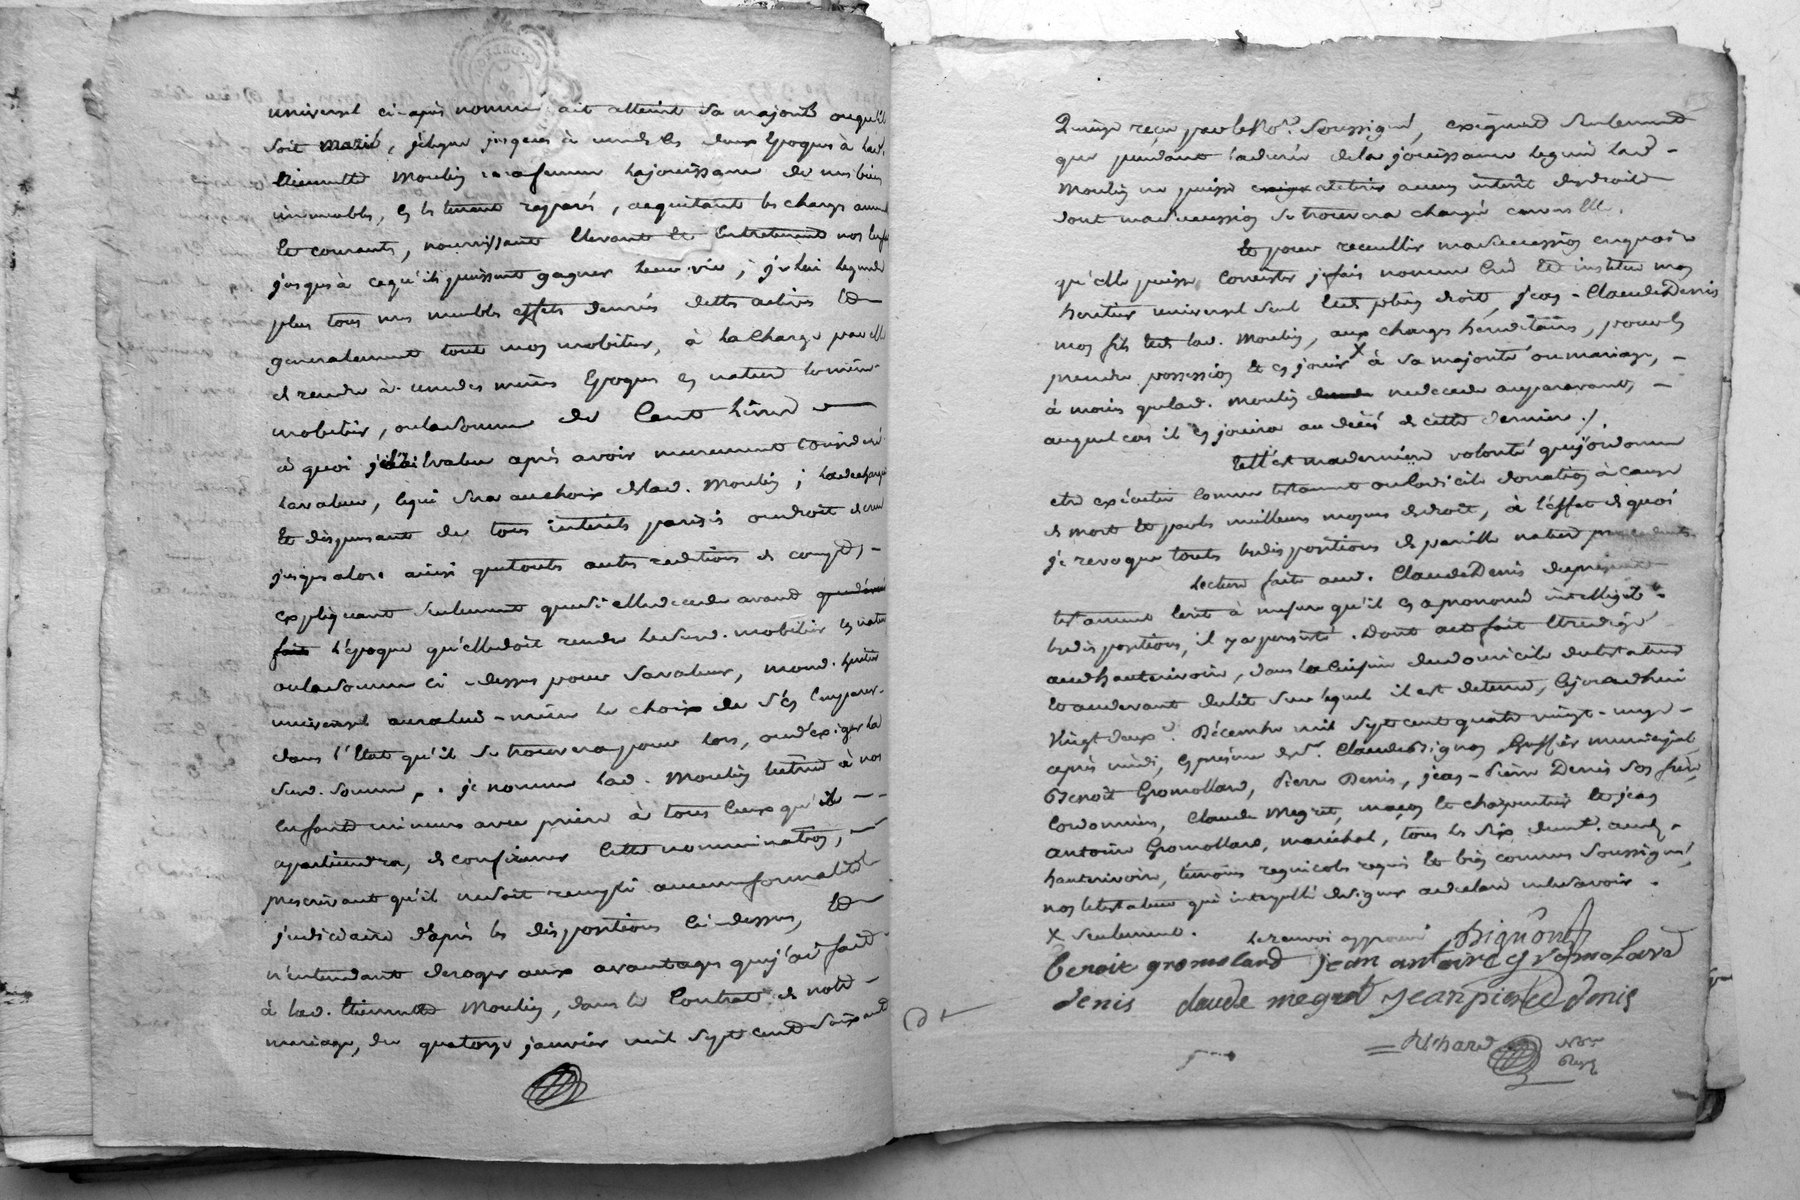 universel ci-après nommé ait atteint sa majorité ou qu'il
soit marié, je legue jusques à une des deux époques à lad.
Etiennette Moulin ma femme la jouissance de mes biens
immeubles, en les tenant reparés, acquitant les charges
et courants, nourrissant élevant et entretenant nos
jusqu'à ce qu'ils puissent gagner leur vie; je lui legue de
plus tous mes meubles effets denrées dettes actives et
generalement tout mon mobilier, à la charge par elle
de rendre à une des mêmes époques en nature le même
mobilier, ou la somme de Cent livres
à quoi je l'ai évalué après avoir murement considéré
la valeur, ce qui sera au choix de lad. Moulin; la dechargeant
et dispensant de tous interets parisis ou droit de crue
jusques alors ainsi que toutes autres redditions de compte,
expliquant seulement que si elle decede avant
fait l'époque qu'elle doit rendre le susd. mobilier en nature
ou la somme ci-dessus pour sa valeur, mond. heritier
universel aura lui-même le choix de s'en emparer
dans l'état qu'il se trouvera pour lors, ou d'exiger la
susd. somme. je nomme lad. Moulin tutrice à nos
enfants mineurs avec prière à tous ceux qu'il
apartiendra, de confirmer cette nommination,
prescrivant qu'il ne soit rempli aucune formalité
judiciaire d'après les dispositions ci-dessus, et
n'entendant deroger aux avantages que j'ai fait
à lad. Etiennette Moulin, dans le Contrat de notre
mariage, du quatorze janvier mil sept cent soixante
Quinze reçu par le No.re soussigné, exigeant seulement
que pendant la durée de la jouissance leguée lad.
Moulin ne puisse exiger aucun intérêt des droits
dont ma succession se trouvera chargée envers elle.
Et pour recueillir ma succession en quoi
qu'elle puisse consister je fais nomme crée et institue mon
heritier universel seul et de plein droit, jean-Claude Denis
mon fils et de lad. Moulin, aux charges héréditaires, pour en
prendre possession et en jouir X à sa majorité ou mariage,
à moins que lad. Moulin ne decede auparavant,
auquel cas il en jouira au décès de cette derniere./.
Telle est ma derniere volonté que j'ordonne
etre exécutée comme testament ou codicile donation à cause
de mort et par les meilleurs moyens de droit, à l'effet de quoi
je revoque toutes les dispositions de pareille nature precedentes
Lecture faite aud. Claude Denis du présent
testament écrit à mesure qu'il en a prononcé intelligiblement
les dispositions, il y a persisté. Dont acte fait et redigé
aud hauterivoire, dans la cuisine du domicile du testateur
et au devant du lit sur lequel il est detenu, cejourd'hui
Vingt deux Décembre mil sept cent quatre vingt-onze
après midi, en présence de Sr. Claude Bignon Greffier municipal
Benoit Gromollard, Pierre Denis, jean-Pierre Denis son frère,
Cordonnier, Claude Megret, maçon et charpentier et jean
antoine Gromollard, maréchal, tous les six demt. aud.
hauterivoire, témoins regnicoles requis et bien connus soussignés,
non le testateur qui interpellé de signer a declaré ne le savoir.
X seulement. le renvoi approuvé Bignon
benoit gromolard jean antoine gromolard
denis claude megret jean pierre denis
Richard